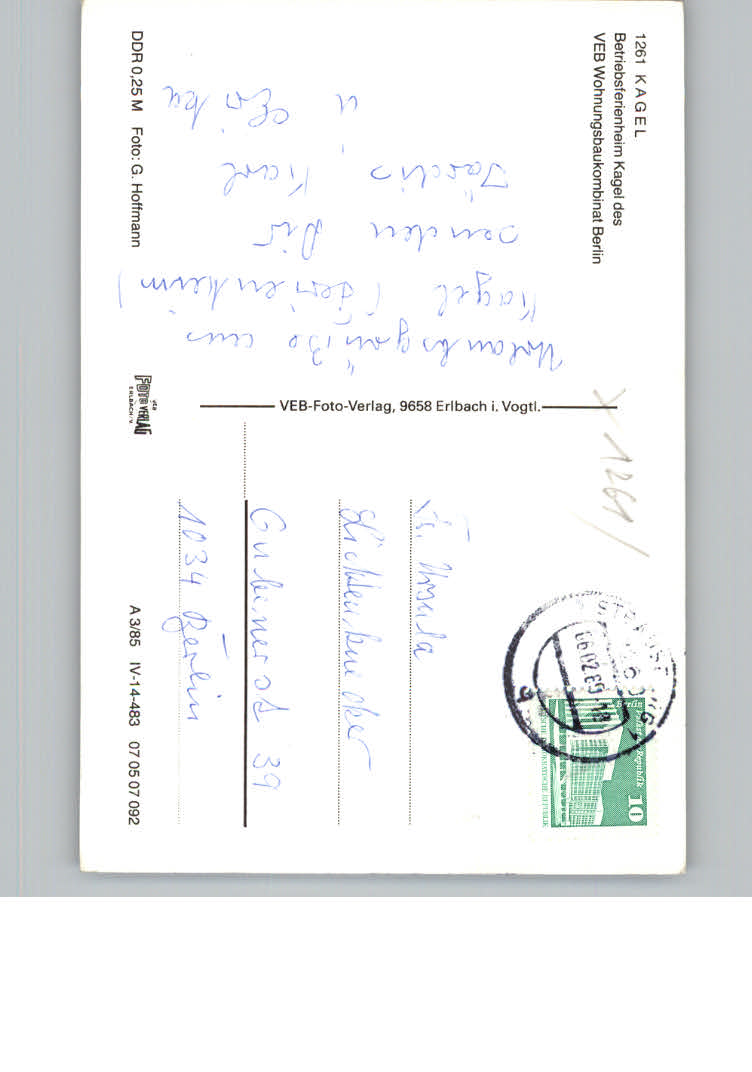 1261 KAGEL
Betriebsferienheim Kagel des
VEB Wohnungsbaukombinat Berlin
Urlaubsgrüße aus
Kagel (Ferienheim)
senden Dir
Karl
u Erika
DDR 0,25 M Foto: G. Hoffmann
VEB-Foto-Verlag, 9658 Erlbach i. Vogtl.
FOTO VERLAG
ERLBACH/V.
1261
Fr. Ursula
Gubenerst 39
1034 Berlin
A 3/85 IV-14-483 07 05 07 092
06.02.89-18
Berlin Palast der Republik
10
DEUTSCHE DEMOKRATISCHE REPUBLIK